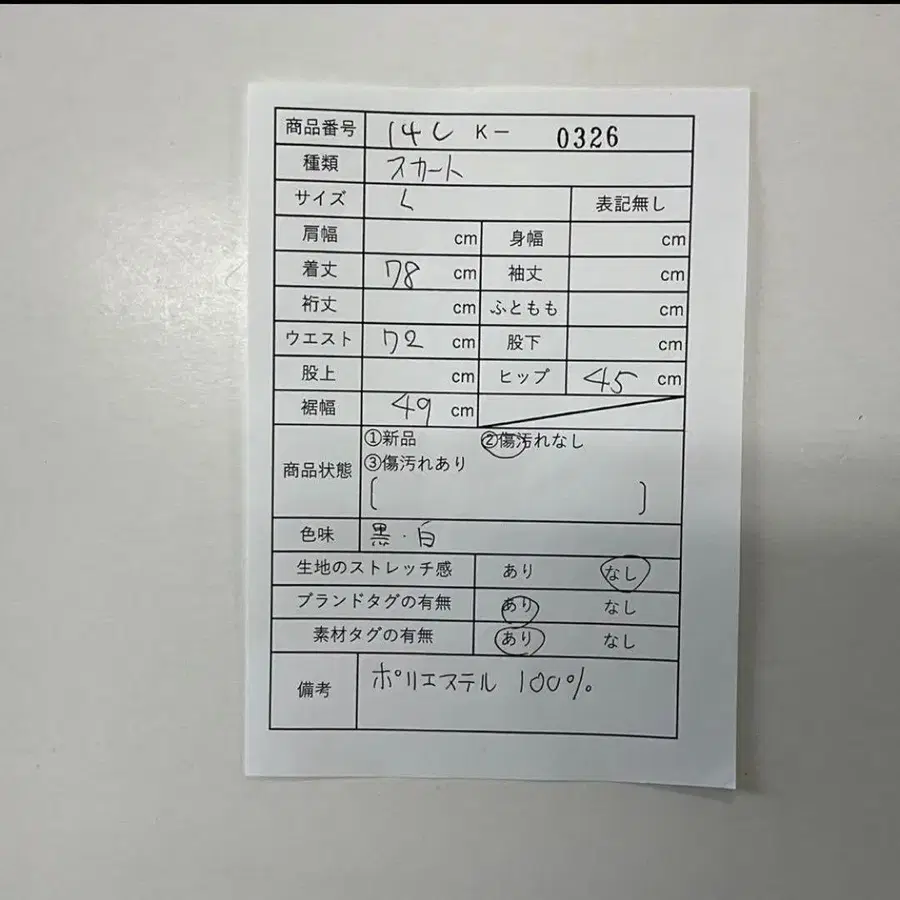 商品番号 14L K- 0326
種類 スカート
サイズ L 表記無し
肩幅 cm 身幅 cm
着丈 78 cm 袖丈 cm
裄丈 cm ふともも cm
ウエスト 72 cm 股下 cm
股上 cm ヒップ 45 cm
裾幅 49 cm
商品状態 ①新品 ②傷汚れなし
③傷汚れあり
[ ]
色味 黒・白
生地のストレッチ感 あり なし
ブランドタグの有無 あり なし
素材タグの有無 あり なし
備考 ポリエステル 100%